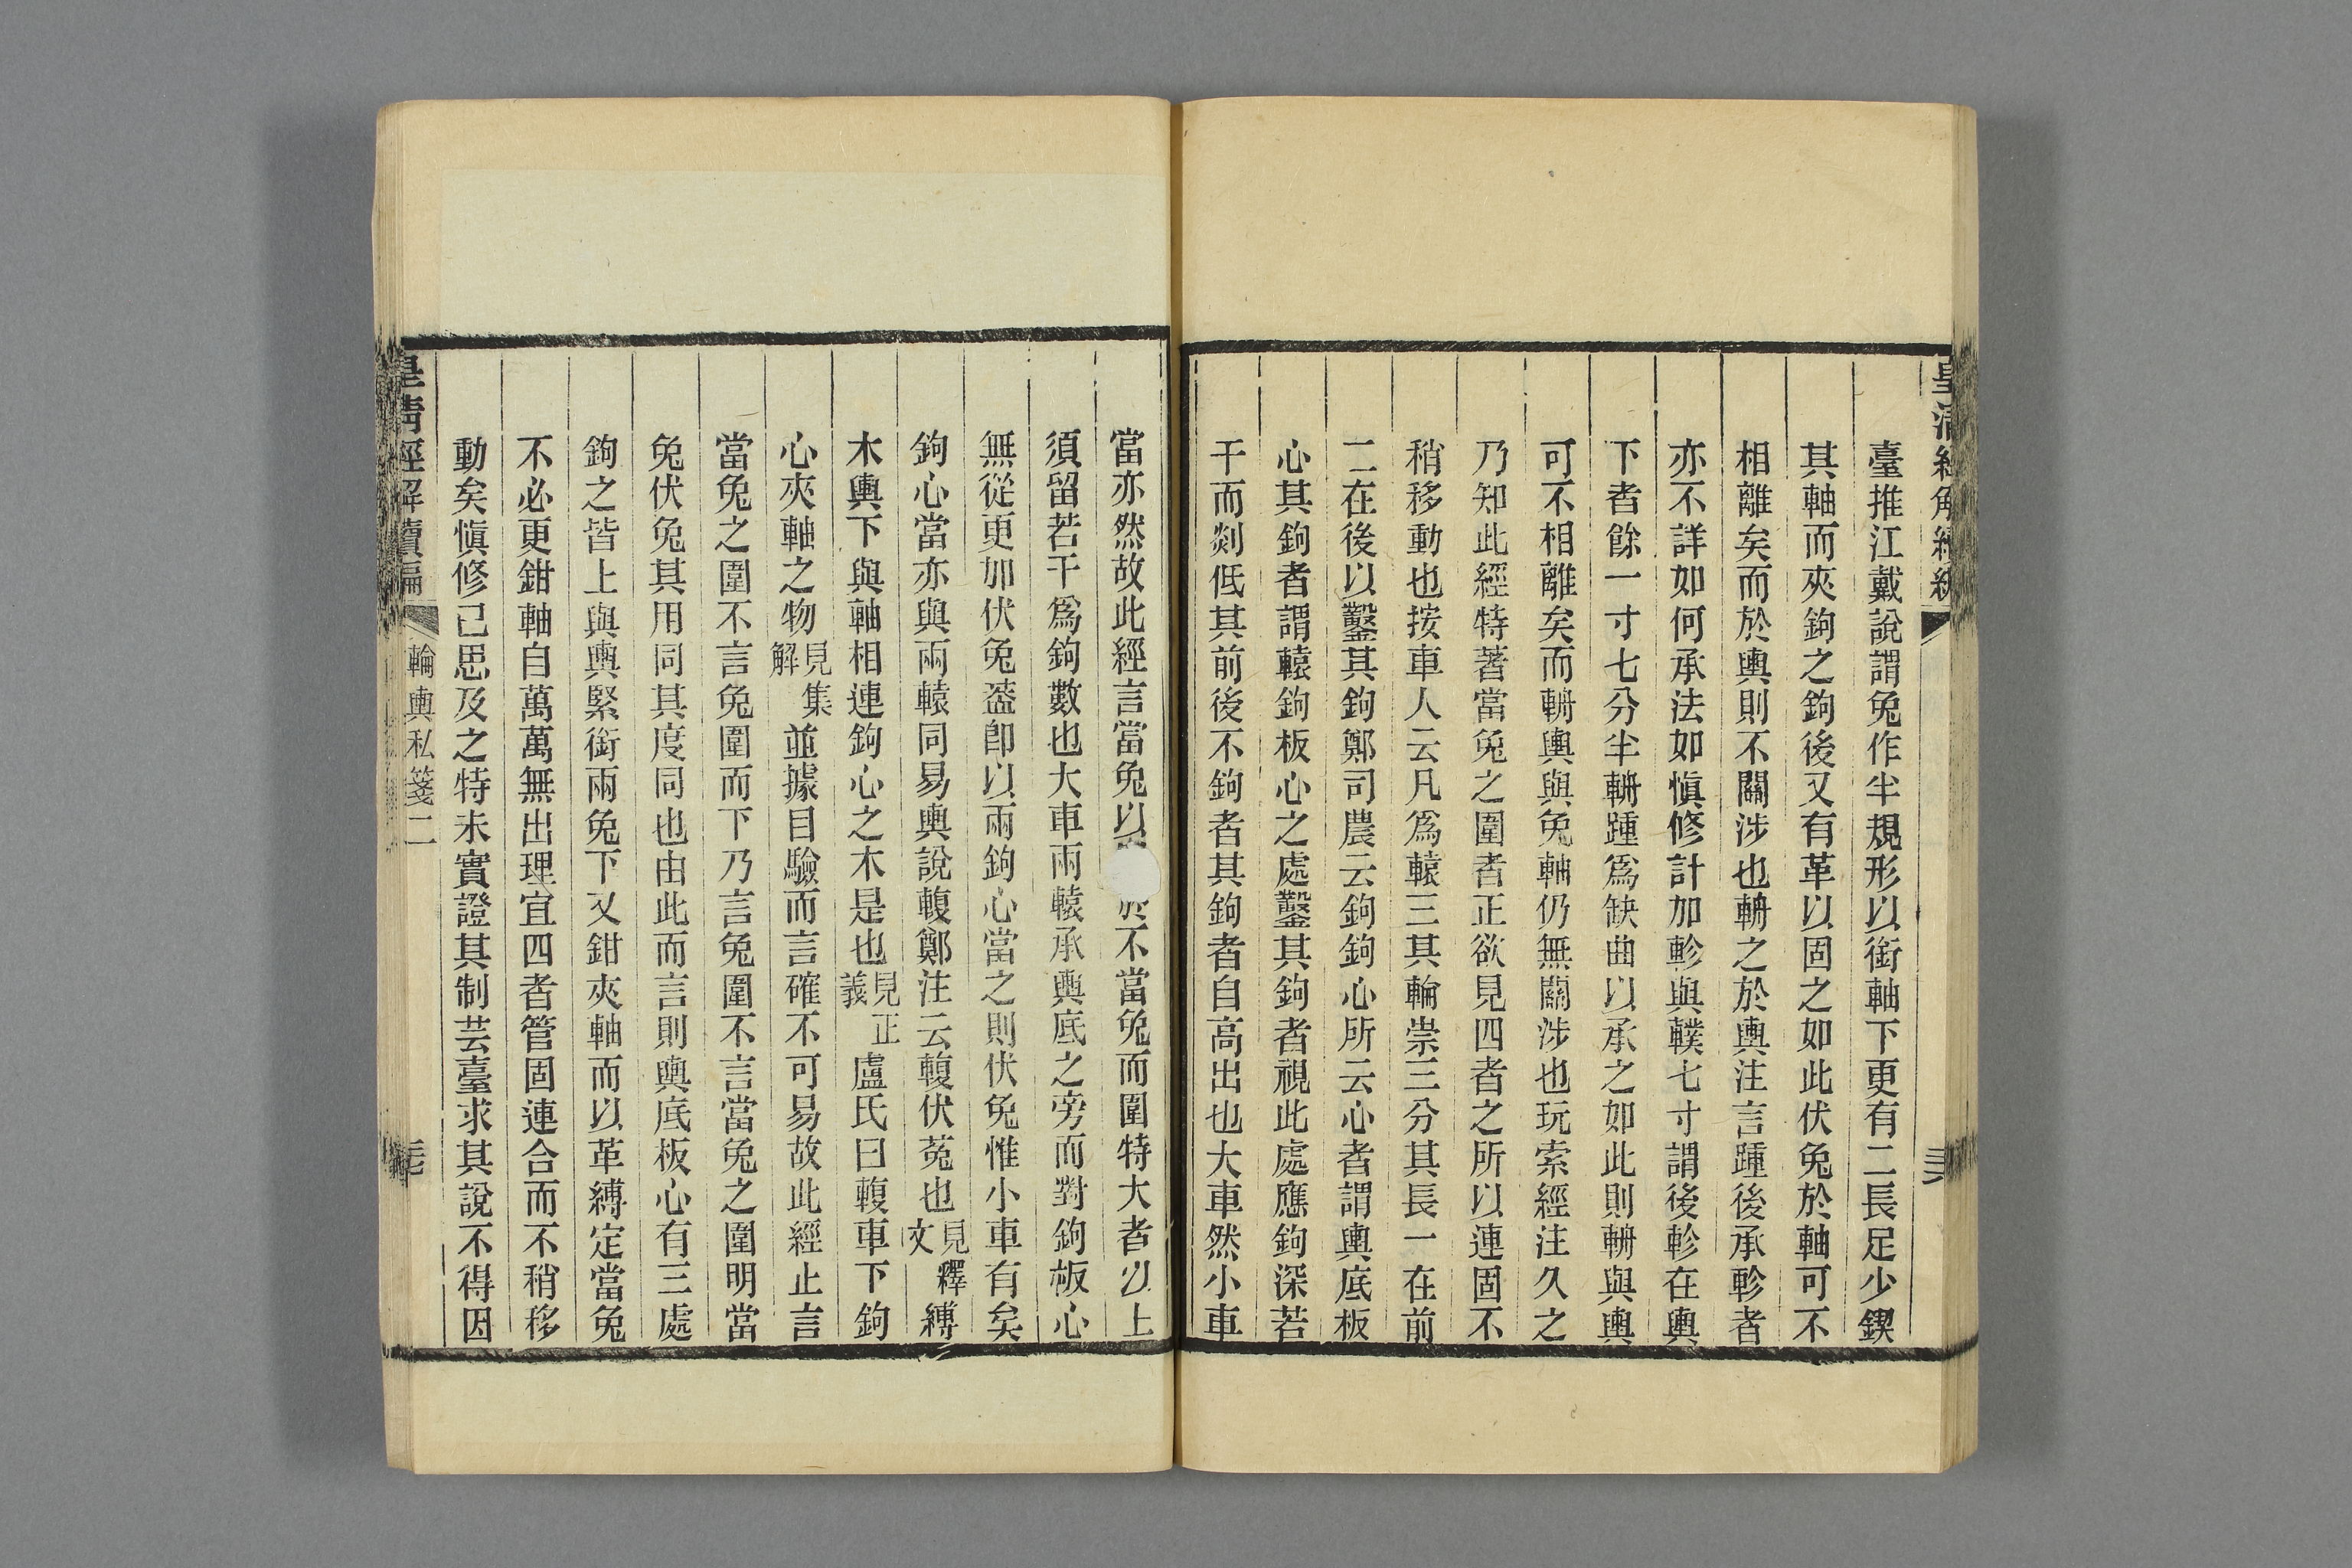 臺推江戴說謂兔作半規形以銜軸下更有二長足少鍥
其軸而夾鉤之鉤後又有革以固之如此伏兔於軸可不
相離矣而於輿則不關涉也輈之於輿注言踵後承軫者
亦不詳如何承法如愼修計加軫與轐七寸謂後軫在輿
下者餘一寸七分半輈踵爲缺曲以承之如此則輈與輿
可不相離矣而輈輿與兔軸仍無關涉也玩索經注久之
乃知此經特著當兔之圍者正欲見四者之所以連固不
稍移動也按車人云凡爲轅三其輪崇三分其長一在前
二在後以鑿其鉤鄭司農云鉤鉤心所云心者謂輿底板
心其鉤者謂轅鉤板心之處鑿其鉤者視此處應鉤深若
干而剡低其前後不鉤者其鉤者自高出也大車然小車
當亦然故此經言當兔以於不當兔而圍特大者以上
須留若干爲鉤數也大車兩轅承輿底之旁而對鉤板心
無從更加伏兔葢卽以兩鉤心當之則伏兔惟小車有矣
鉤心當亦與兩轅同易輿說輹鄭注云輹伏菟也見釋文縛
木輿下與軸相連鉤心之木是也見正義盧氏曰輹車下鉤
心夾軸之物見集解並據目驗而言確不可易故此經止言
當兔之圍不言兔圍而下乃言兔圍不言當兔之圍明當
兔伏兔其用同其度同也由此而言則輿底板心有三處
鉤之皆上與輿緊銜兩兔下又鉗夾軸而以革縛定當兔
不必更鉗軸自萬萬無出理宜四者管固連合而不稍移
動矣愼修已思及之特未實證其制芸臺求其說不得因
皇清經解續編
輪輿私箋二